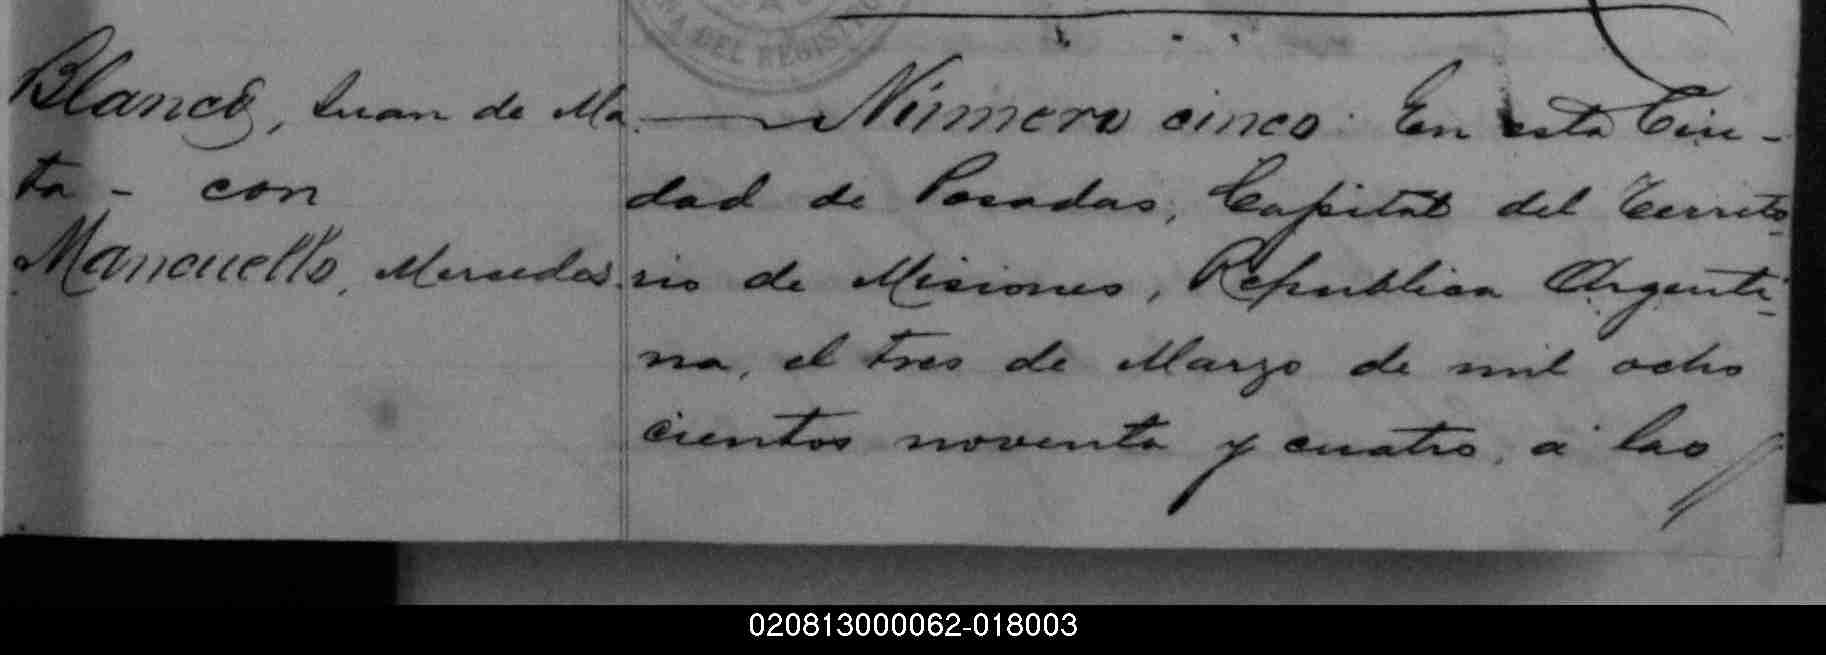 DEL REGIST
Blanco, Juan de Ma
ta - con
Mancuello, Mersedes.
Número cinco. En esta Ciu-
dad de Posadas, Capital del Territo-
rio de Misiones, Republica Argenti-
na, el tres de Marzo de mil ocho
cientos noventa y cuatro, á las
020813000062-018003